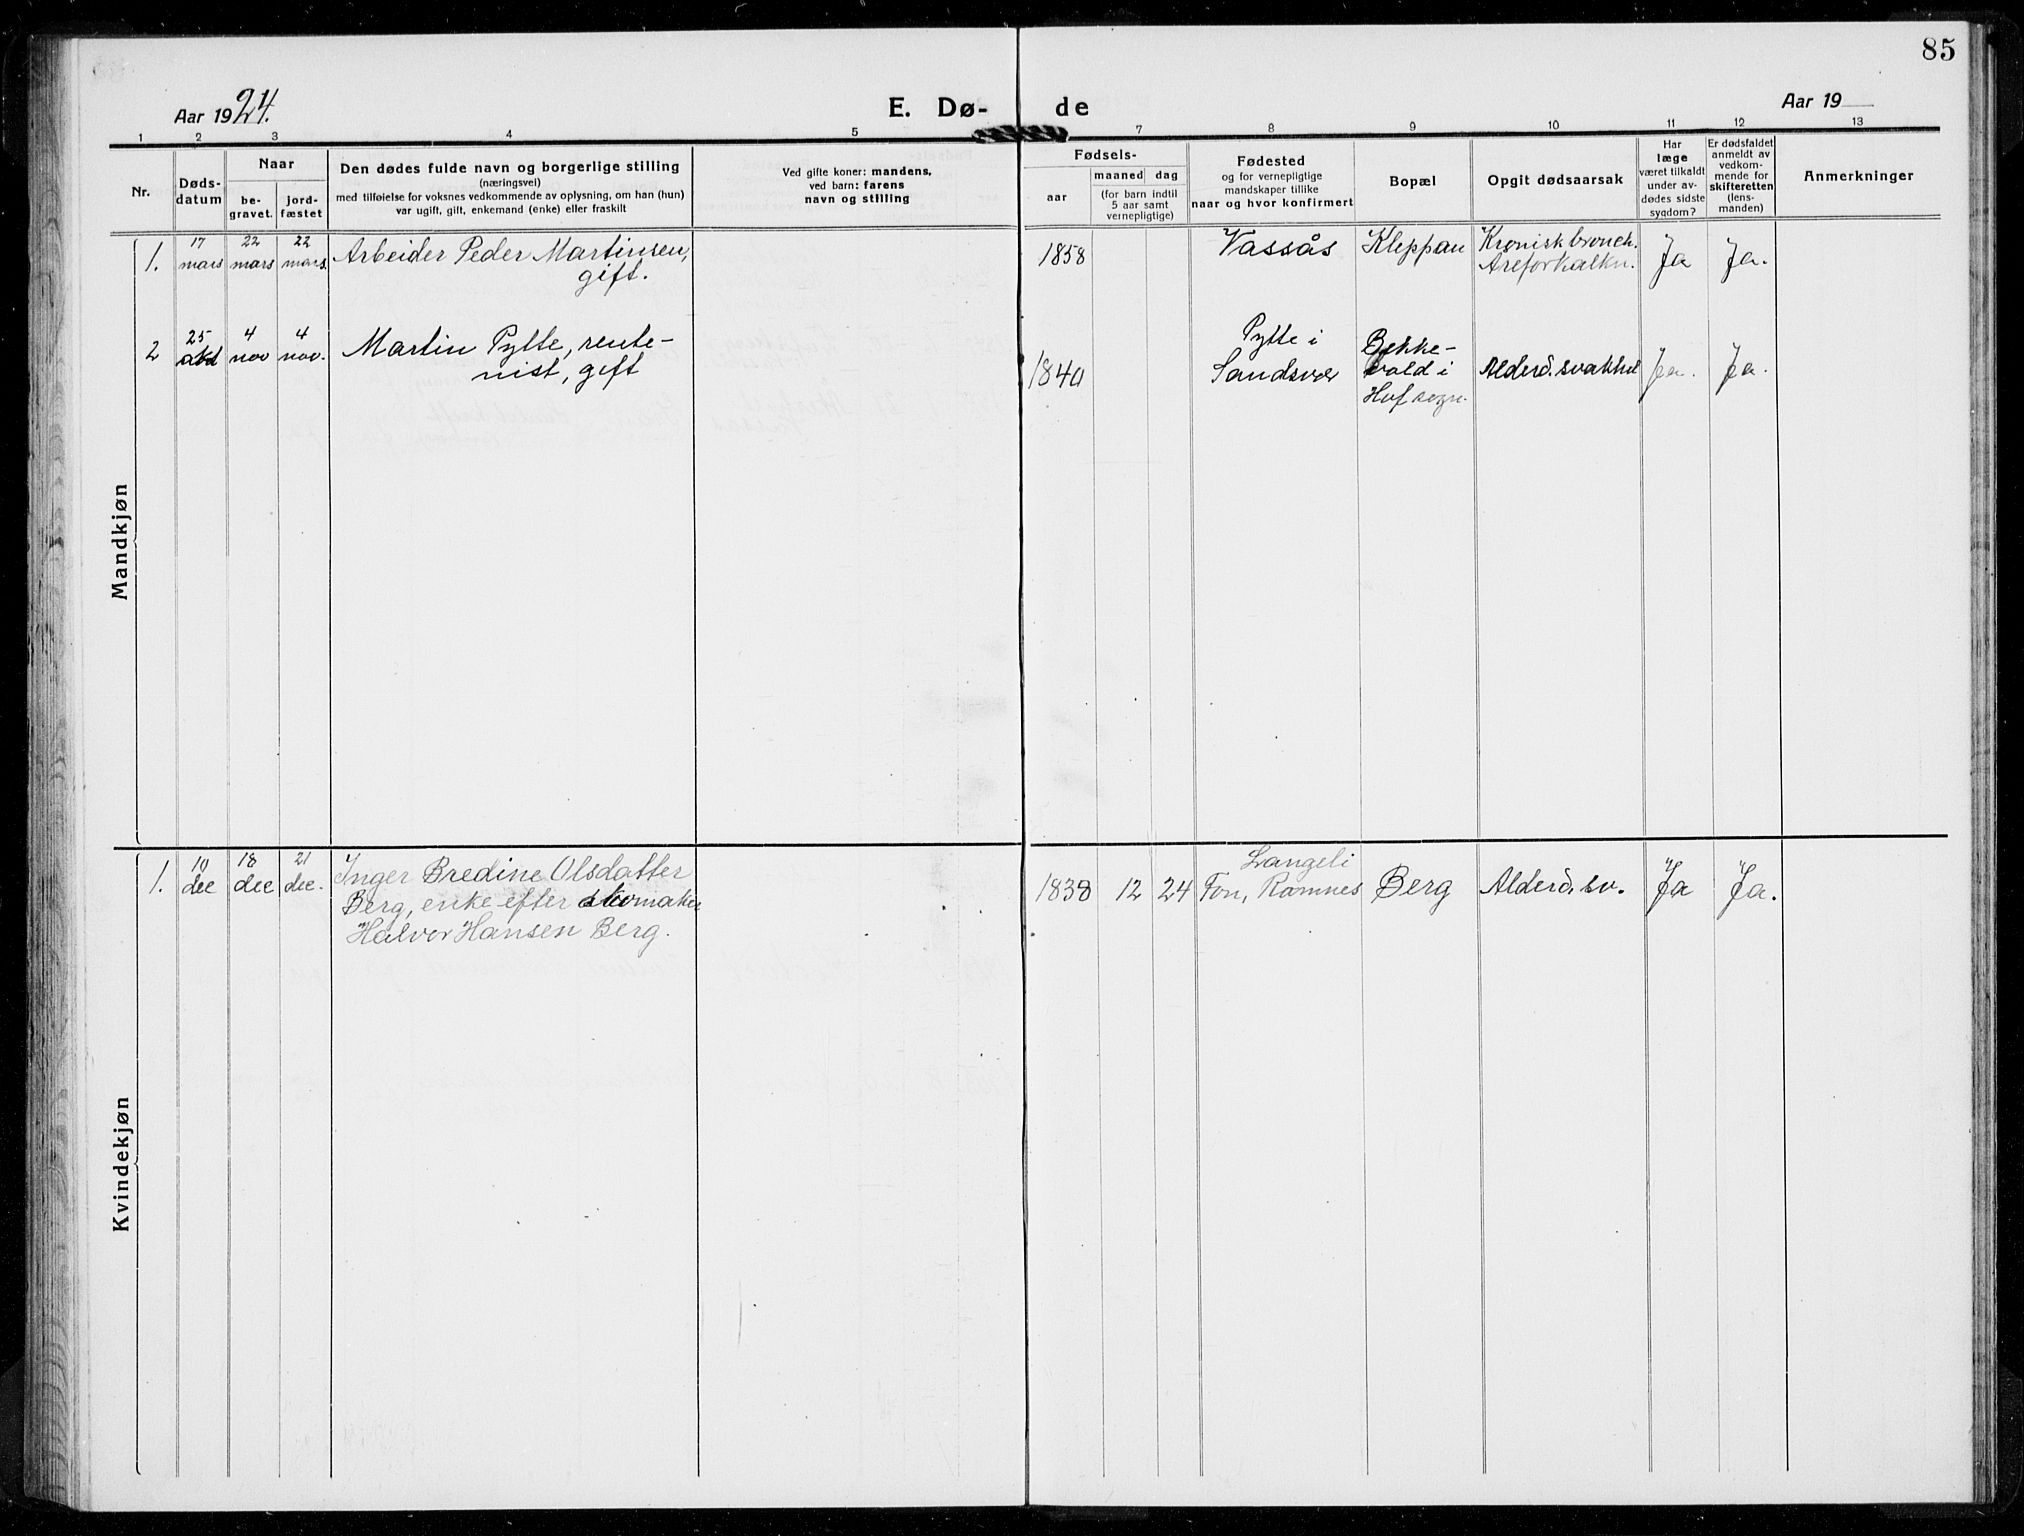 85
Aar 1924.
E. Dø-
de
Aar 19
1 2 3 4 5 7 8 9 10 11 12 13
Nr.
Døds-
datum
Naar
be-
gravet.
jord-
fæstet
Den dødes fulde navn og borgerlige stilling
(næringsvei)
med tilføielse for voksnes vedkommende av oplysning, om han (hun)
var ugift, gift, enkemand (enke) eller fraskilt
Ved gifte koner: mandens,
ved barn: farens
navn og stilling
Fødsels-
aar
maaned dag
(for barn indtil
5 aar samt
vernepligtige)
Fødested
og for vernepligtige
mandskaper tillike
naar og hvor konfirmert
Bopæl
Opgit dødsaarsak
Har
læge
været tilkaldt
under av-
dødes sidste
sygdom?
Er dødsfaldet
anmeldt av
vedkom-
mende for
skifteretten
(lens-
manden)
Anmerkninger
Mandkjøn
17 22 22
1. mars mars mars. Arbeider Peder Martinsen, 1858 Vassås Kleppan Kronisk bronch. Ja Ja.
gift. Areforkalkn.
25 4 4 Pytte i
2 okt nov nov. Martin Pytte, rente- Bekke-
nist, gift 1840 Sandsvær vold i Alderd. svakhed Ja. Ja.
Hof sogn.
Kvindekjøn
10 18 21 Langeli
1. dec dec dec. Inger Bredine Olsdatter 1838 12 24 Fon, Ramnes Berg Alderd. sv. Ja Ja.
Berg, enke efter skomaker
Halvor Hansen Berg.